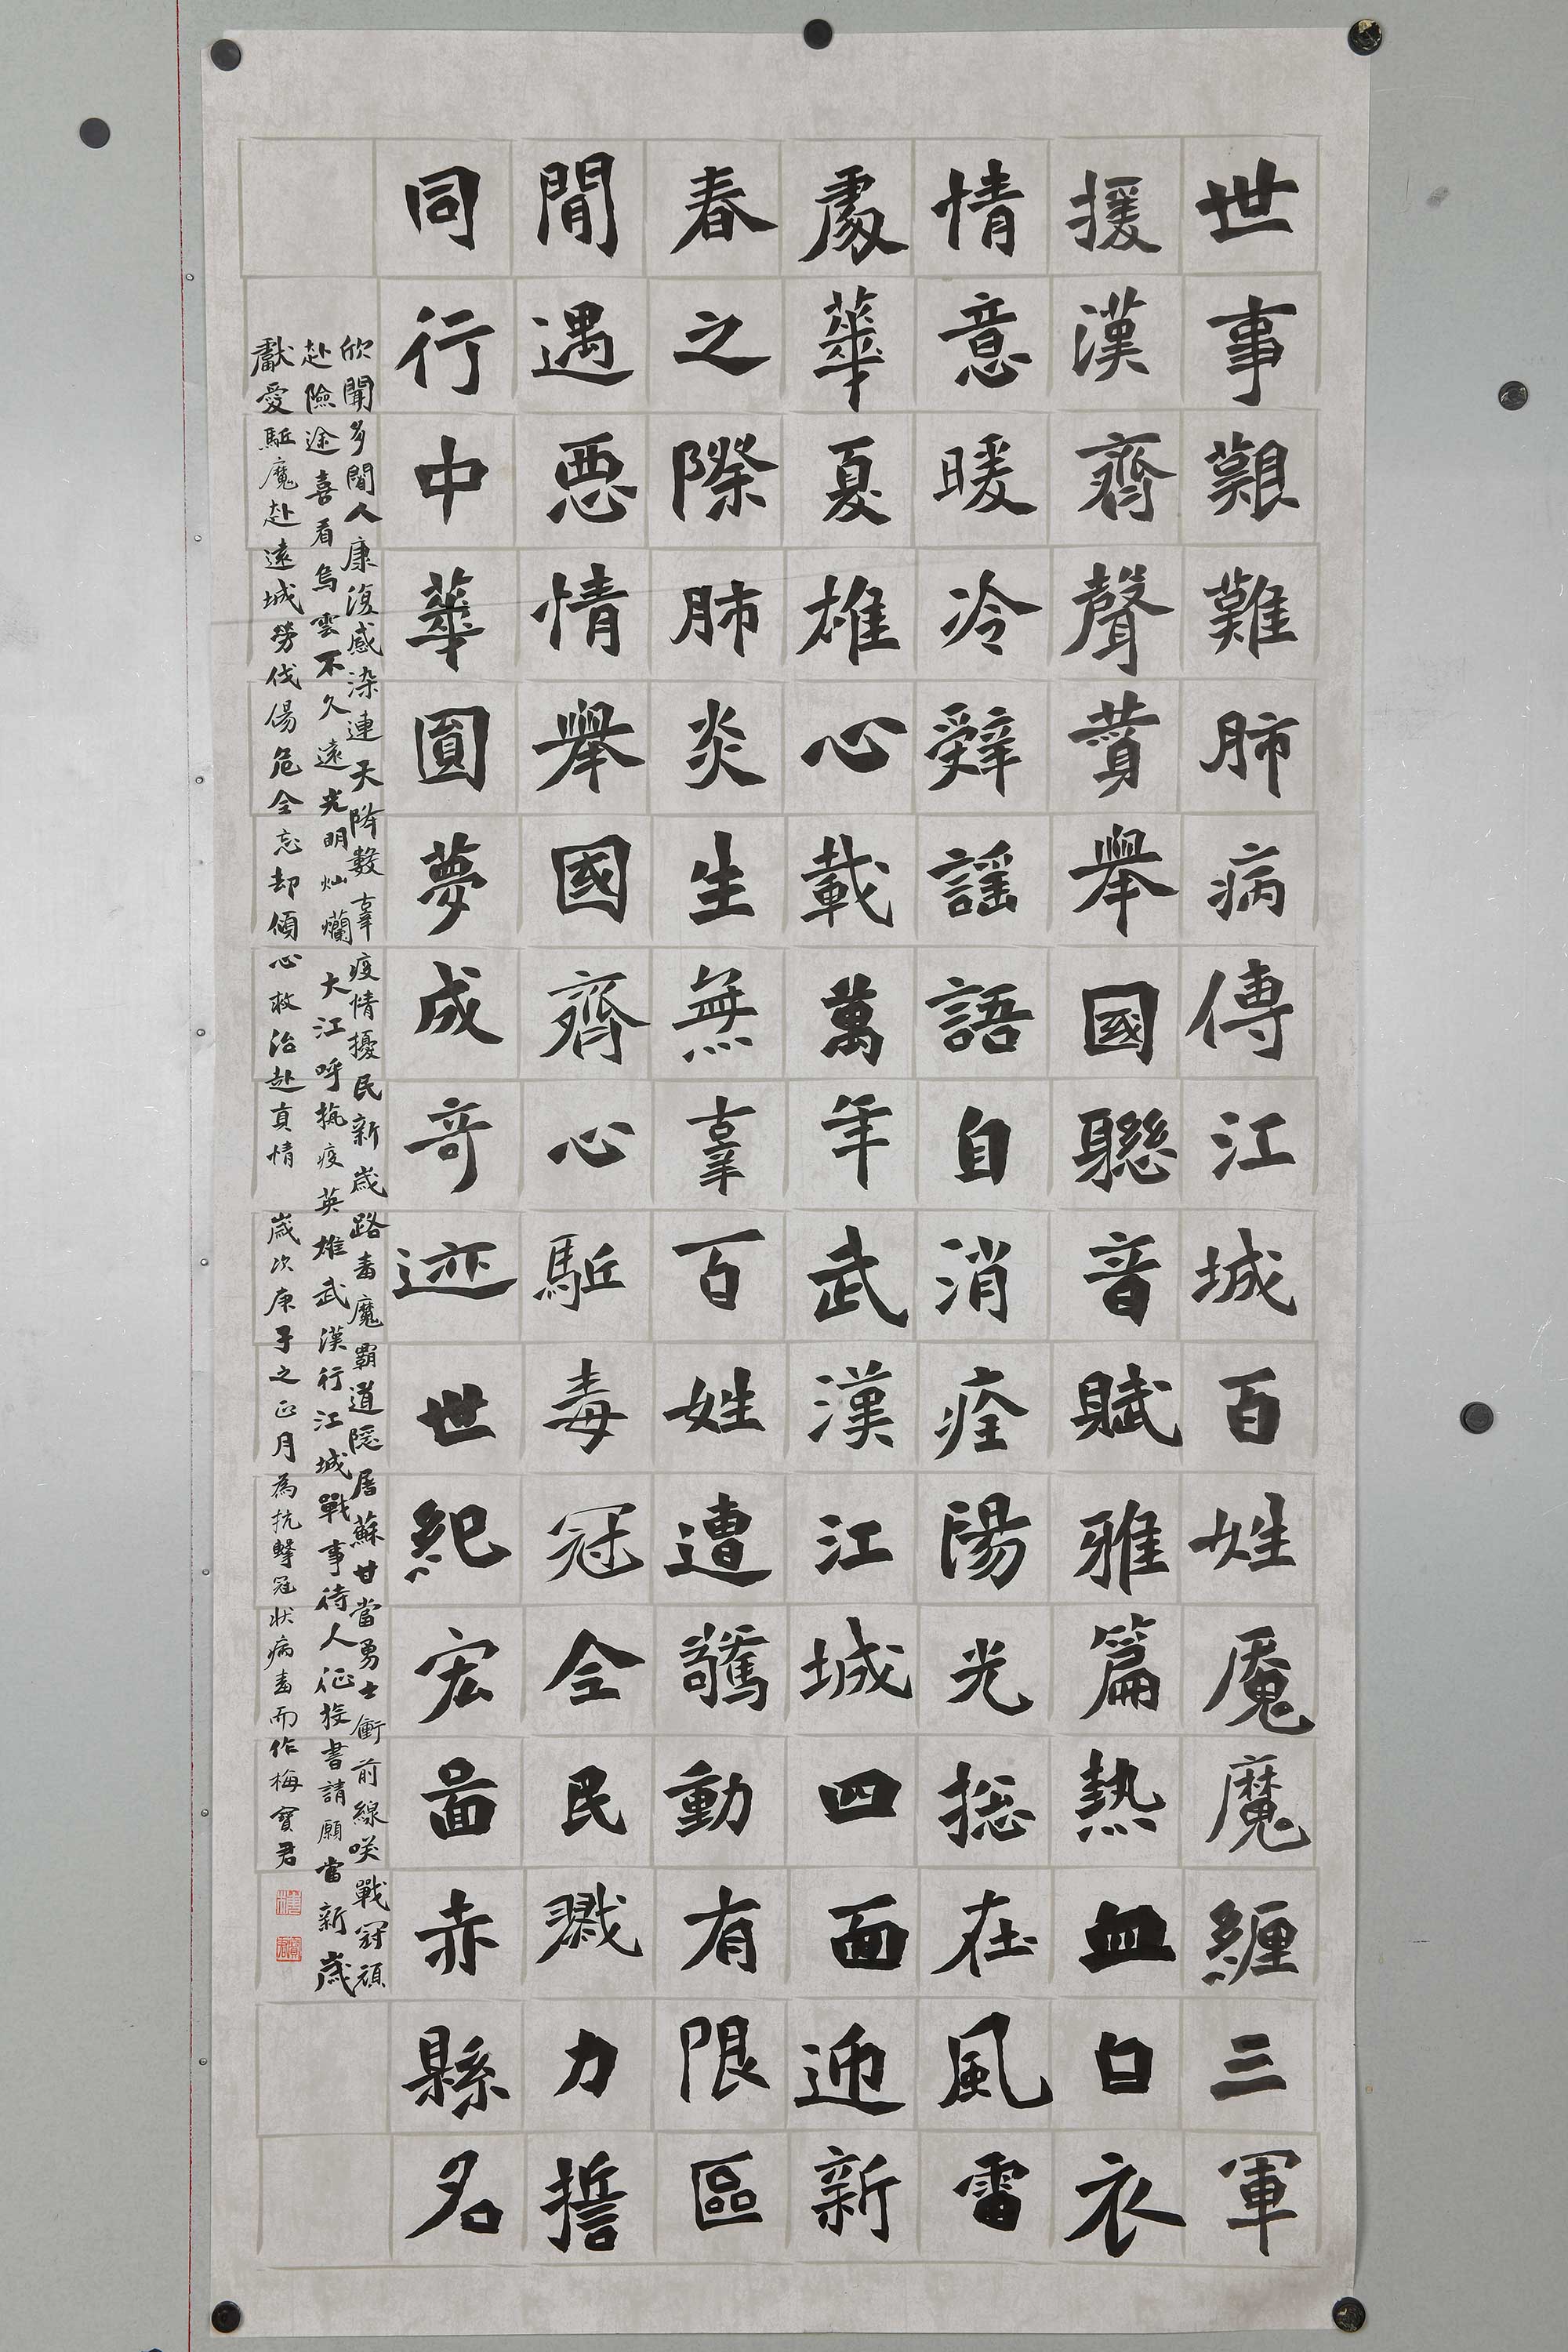 世事艱難肺病傳江城百姓魘魔纏三軍
援漢齊聲贊舉國聯音賦雅篇熱血白衣
情意暖冷辭謠語自消痊陽光總在風雷
處華夏雄心載萬年武漢江城四面迎新
春之際肺炎生無辜百姓遭驚動有限區
間遇惡情舉國齊心駈毒冠全民戮力誓
同行中華圓夢成奇迹世紀宏圖赤縣名
欣聞多間人康復感染連天降數辜疫情擾民新歲路毒魔霸道隱居蘇甘當勇士衝前線笑戰冠頑
赴險途喜看烏雲不久遠光明灿爛大江呼抗疫英雄武漢行江城戰事待人征按書請願當新歲
獻愛駈魔赴遠城勞伐傷危全忘却傾心救治赴真情歲次庚子之正月為抗擊冠状病毒而作梅寶君